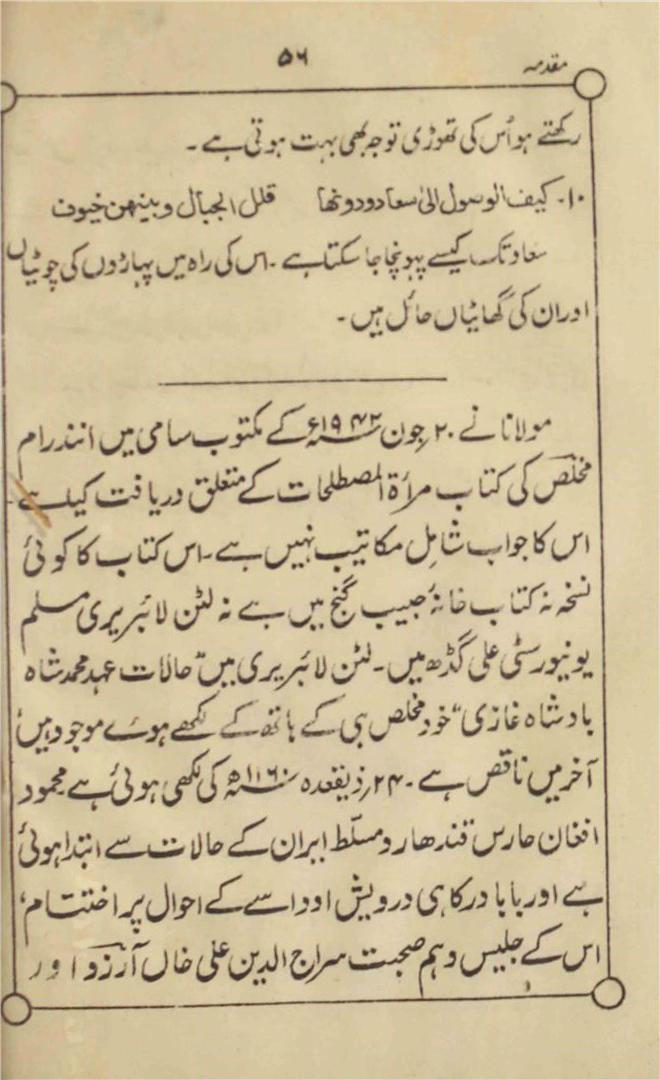 مقدمہ
۵۶
رکھتے ہو اُس کی تھوڑی توجہ بھی بہت ہوتی ہے۔
۱۰۔ کیف الوصول الیٰ سعاد و دونھا قلل الجبال و بینھن خیوف
سعاد تک کیسے پہونچا جا سکتا ہے۔ اس کی راہ میں پہاڑوں کی چوٹیاں
اور ان کی گھاٹیاں حائل ہیں۔
مولانا نے ۲۰؍جون ۱۹۴۲ء کے مکتوب سامی میں انندرام
مخلص کی کتاب مرأۃ المصطلحات کے متعلق دریافت کیا ہے۔
اس کا جواب شامل مکاتیب نہیں ہے۔ اس کتاب کا کوئی
نسخہ نہ کتاب خانۂ حبیب گنج میں ہے نہ لٹن لائبریری مسلم
یونیورسٹی علی گڈھ میں۔ لٹن لائبریری میں "حالات عہد محمد شاہ
بادشاہ غازی" خود مخلص ہی کے ہاتھ کے لکھے ہوے موجود ہیں
آخر میں ناقص ہے۔ ۲۴؍ذیقعدہ ۱۱۶۰ھ کی لکھی ہوئی ہے محمود
افغان حارس قندھار و مسلّط ایران کے حالات سے ابتدا ہوئی
ہے اور بابا درکاہی درویش اوداسے کے احوال پر اختتام،
اس کے جلیس و ہم صحبت سراج الدین علی خاں آرزو اور